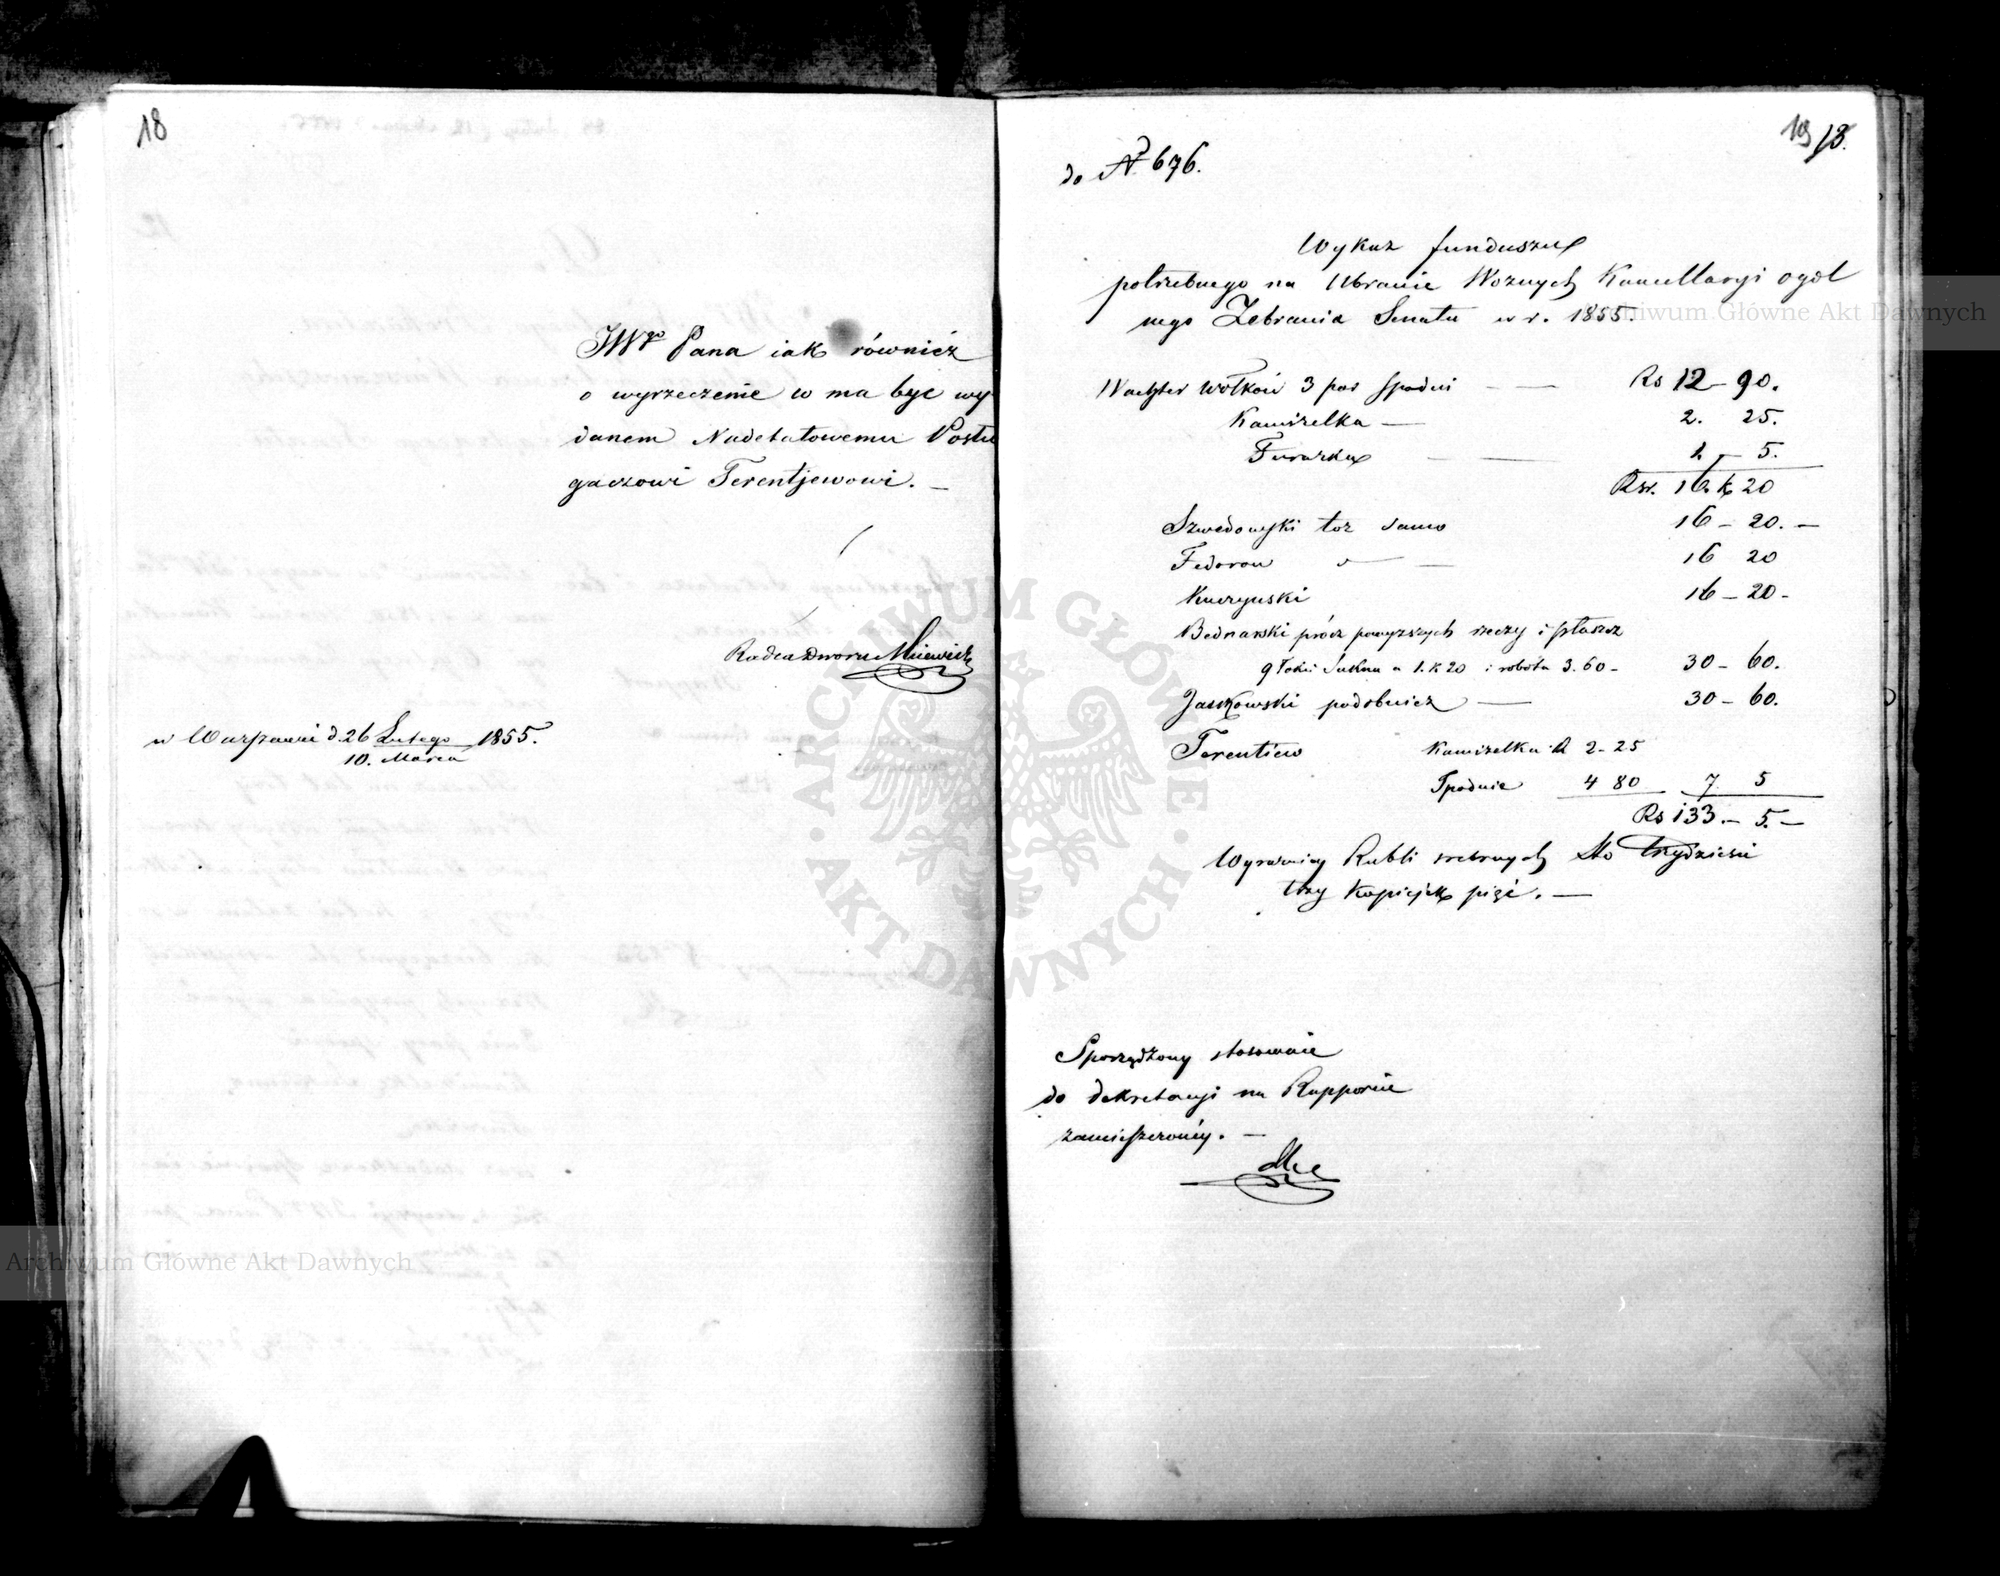 18
JWgo Pana iak również
o wyrzeczenie co ma być wy
danem Nadetatowemu Posłu
gaczowi Terentjewowi. —
Radca Dworu
w Warszawie d. 26 Lutego 1855.
10. Marca
19 13.
do N 676.
Wykaz funduszu
potrzebnego na Ubranie Woźnych Kancellaryi ogól
nego Zebrania Senatu w r. 1855.
Wachter Wołków 3 par spodni — — Rs 12 — 90.
Kamizelka — 2. 25.
Furażka — — 1. — 5.
Rsr. 16. k 20
Szwedowski toż samo 16 — 20. —
Fedorow — 16 20
Kuczyński 16 — 20 —
Bednarski prócz powyższych rzeczy i płaszcz
9 łokci Sukna a 1. k 20 i robota 3. 60 — 30 — 60.
Jaszkowski podobnież — 30 — 60.
Terentiew Kamizelka R 2 — 25
Spodnie 4 80 7 5
Rs 133. — 5. —
Wyraźniej Rubli srebrnych sto trzydzieści
trzy kopiejek pięć. —
Sporządzony stosownie
do dekretacyi na Rapporcie
zamieszczonéy. —
Archiwum Główne Akt Dawnych
Archiwum Główne Akt Dawnych
ARCHIWUM GŁÓWNE · AKT DAWNYCH ·